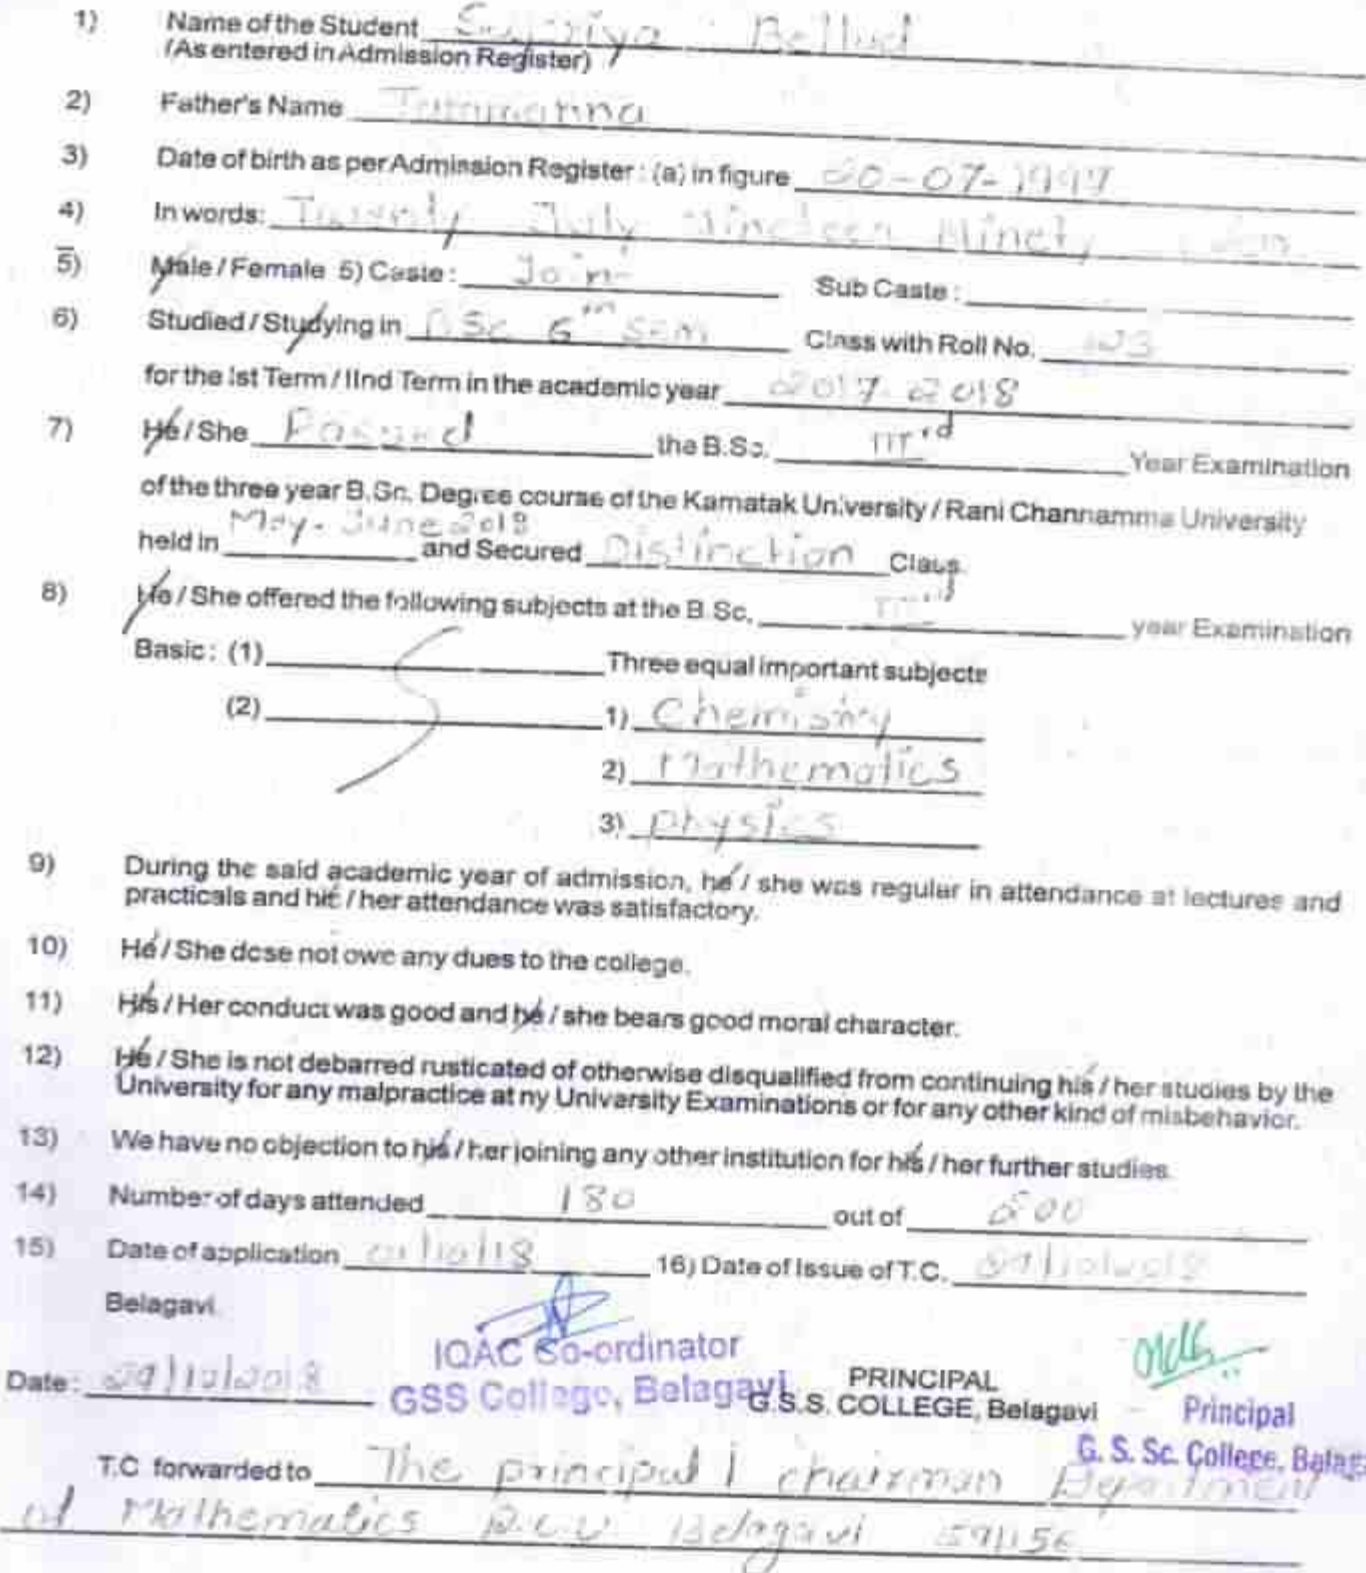 1) Name of the Student Supriya Bellud
(As entered in Admission Register)
2) Father's Name Tammanna
3) Date of birth as per Admission Register : (a) in figure 20-07-1997
4) In words: Twenty July Nineteen Ninety
5) Male / Female 5) Caste : Jain Sub Caste :
6) Studied / Studying in BSc 6th Sem Class with Roll No.
for the Ist Term / IInd Term in the academic year 2017-2018
7) He / She Passed the B.Sc. IIIrd Year Examination
of the three year B.Sc. Degree course of the Karnatak University / Rani Channamma University
held in May-June 2018 and Secured Distinction Class.
8) He / She offered the following subjects at the B.Sc. IIIrd year Examination
Basic : (1) Three equal important subjects
(2) 1) Chemistry
2) Mathematics
3) physics
9) During the said academic year of admission, he / she was regular in attendance at lectures and
practicals and his / her attendance was satisfactory.
10) He / She dose not owe any dues to the college.
11) His / Her conduct was good and he / she bears good moral character.
12) He / She is not debarred rusticated of otherwise disqualified from continuing his / her studies by the
University for any malpractice at ny University Examinations or for any other kind of misbehavior.
13) We have no objection to his / her joining any other institution for his / her further studies.
14) Number of days attended 180 out of 200
15) Date of application 16) Date of Issue of T.C.
Belagavi
IQAC Co-ordinator
GSS College, Belagavi
PRINCIPAL
G.S.S. COLLEGE, Belagavi
Principal
G. S. Sc. College, Belag
Date :
T.C forwarded to The principal / chairman Department
of Mathematics R.C.U Belagavi 591156